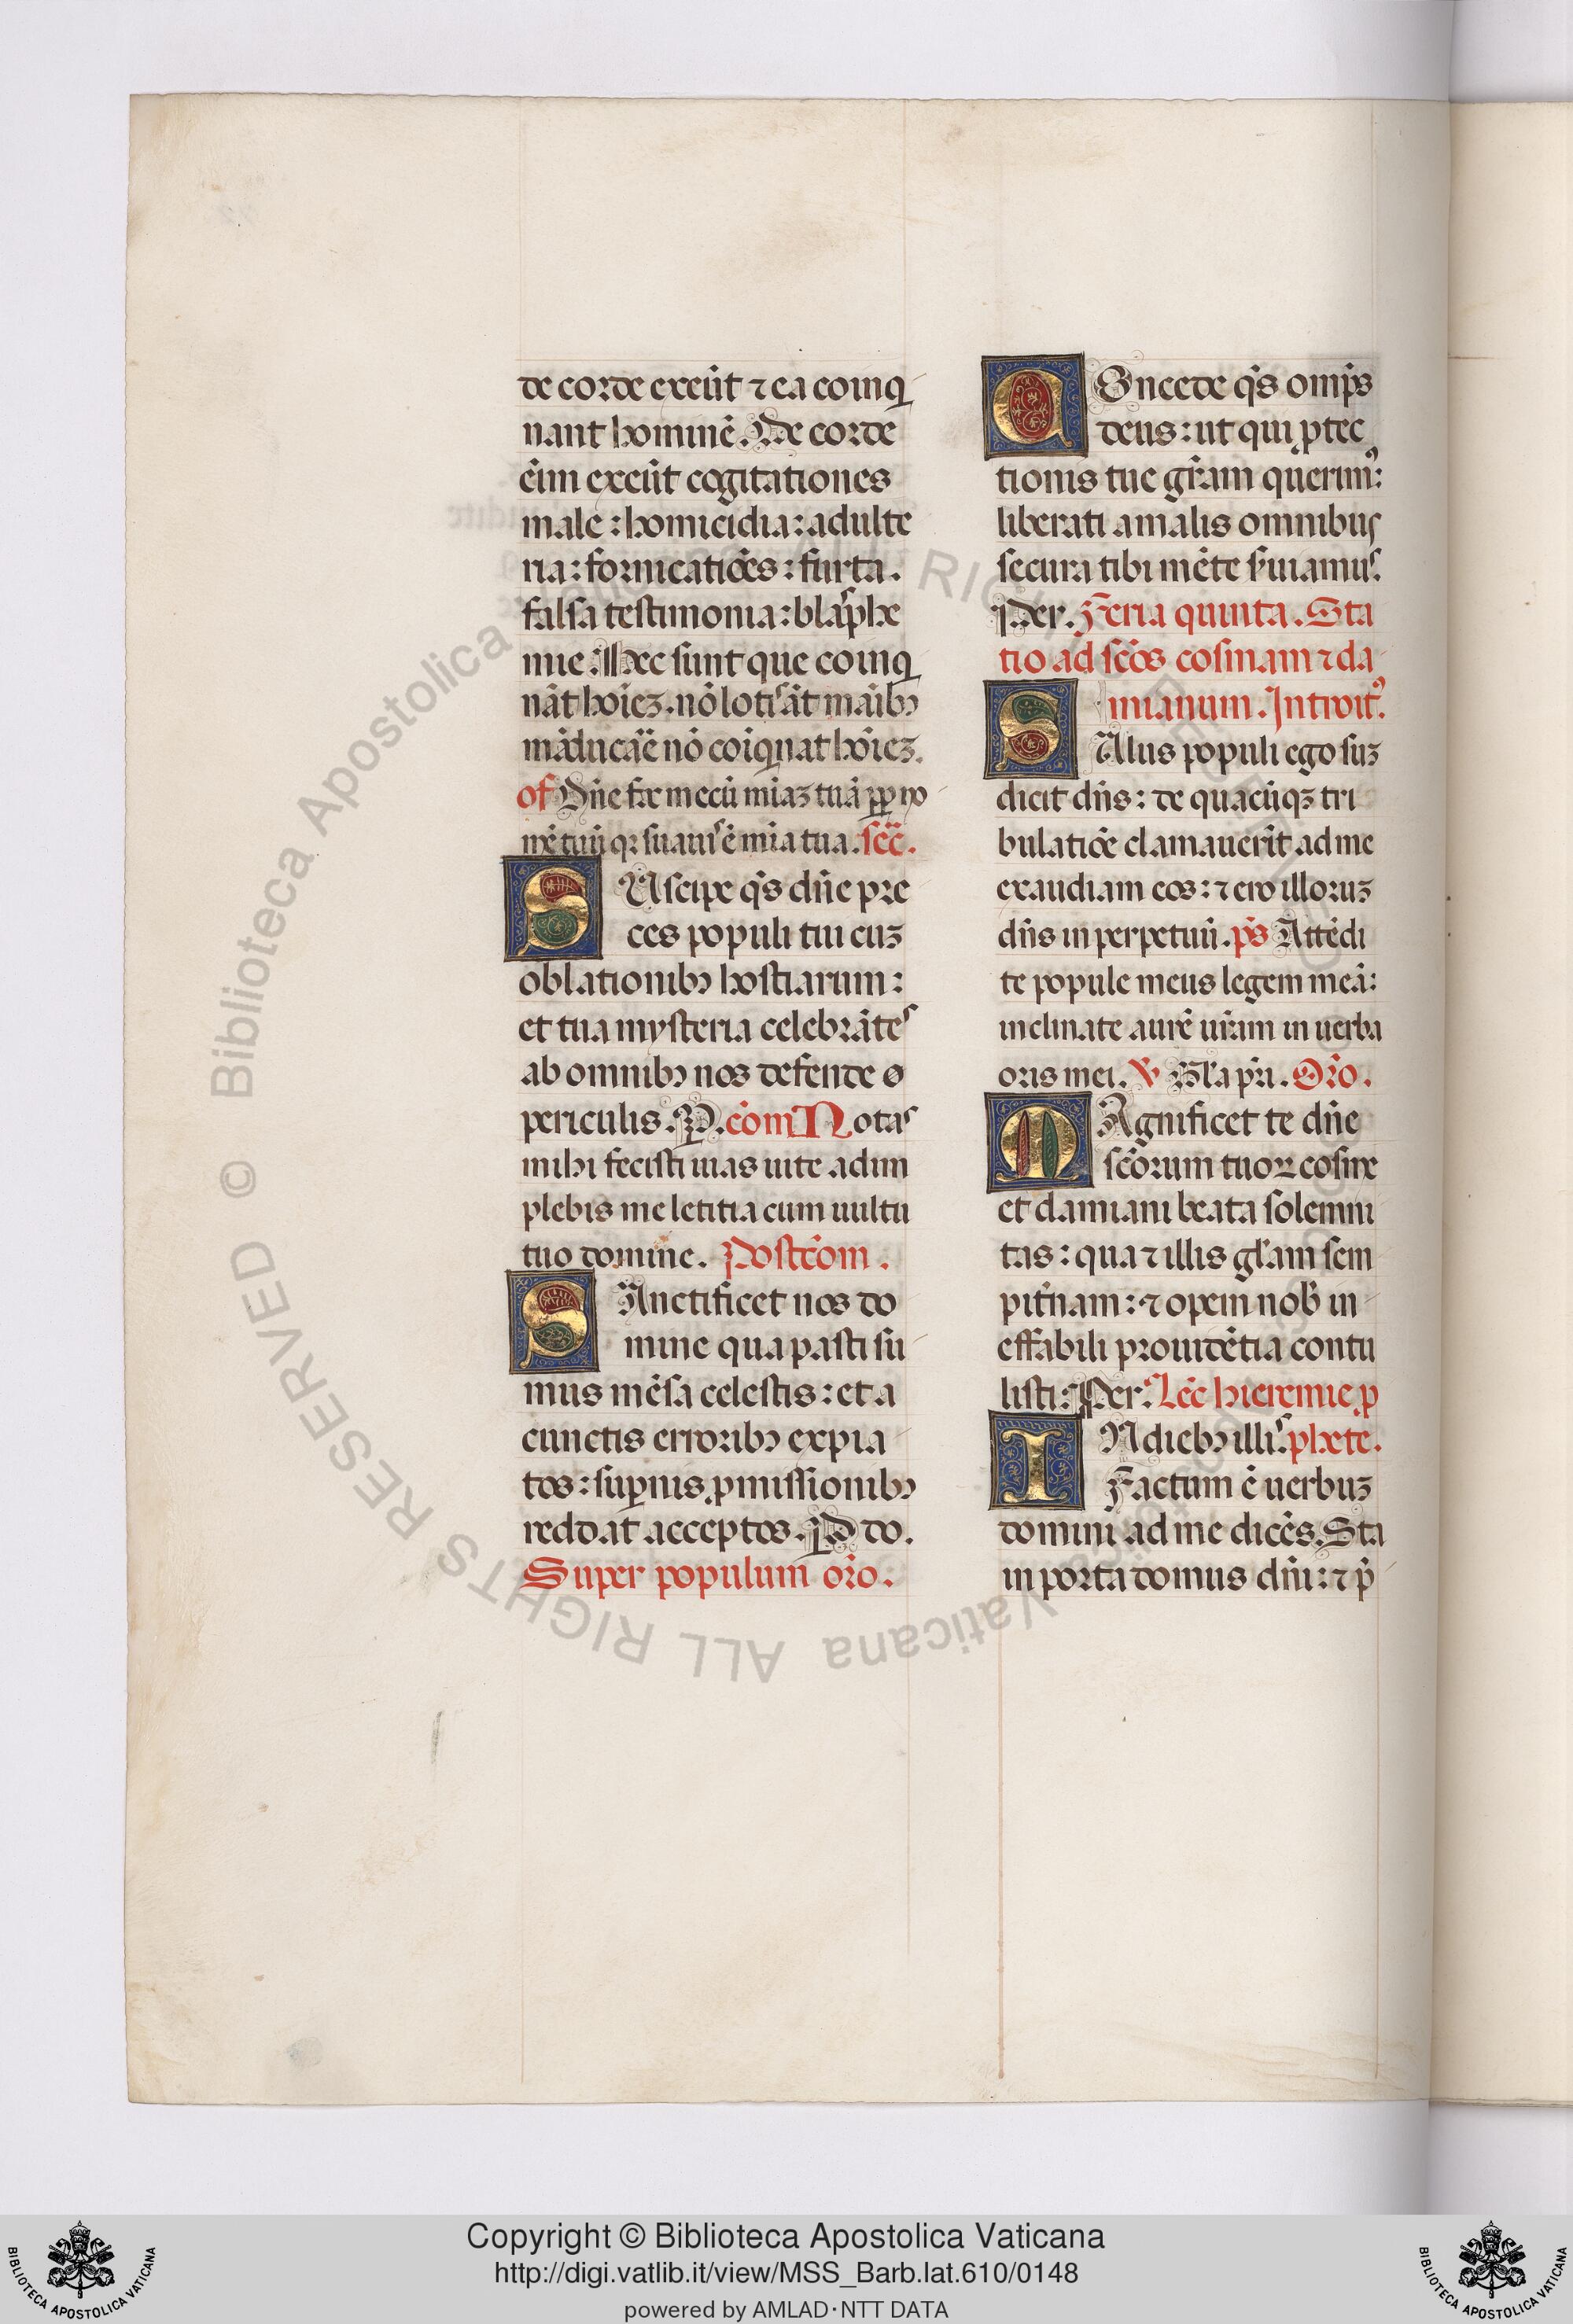 de corde exeũt ⁊ ea coinq
nant hominẽ. De corde
eĩm exeũt cogitationes
male: homicidia: adulte
ria: fornicatiões: furta.
falsa testimonia: blasphe
mie. Hec sunt que coinq
nãt hoĩez. nõ lotis ãt maĩbꝫ
mãducãe nõ coĩqnat hoĩez.
of Dñe fac mecũ mĩaz tuã ꝓp no
mẽ tuũ qꝛ suauis ẽ mĩa tua. secͣ.
SUscipe qs̃ dñe pre
ces populi tui cuz
oblationibꝫ hostiarum:
et tua mysteria celebrãtes
ab omnibꝫ nos defende
periculis. P. com̃ Notas
mihi fecisti uias uite adim
plebis me letitia cum uultu
tuo domine. Postcõm.
SAnctificet nos do
mine qua pasti su
mus mẽsa celestis: et a
cunctis erroribꝫ expia
tos: suꝑnis ꝓmissionibꝫ
reddat acceptos. P̱ do.
Super populum orõ.
COncede qs̃ omps̃
deus: ut qui ꝓtec
tionis tue grãm querimꝰ:
liberati a malis omnibus
secura tibi mẽte s̃uiamus.
Per. Feria quinta. Sta
tio ad scõs cosmam ⁊ da
mianum. Introitꝰ.
SAlus populi ego suz
dicit dñs: de quacũqꝫ tri
bulatiõe clamauerĩt ad me
exaudiam eos: ⁊ ero illoruz
dñs in perpetuũ. ps̃ Attẽdi
te popule meus legem meã:
inclinate aurẽ ur̃am in uerba
oris mei. ℣ Gl̃a pr̃i. Orõ.
MAgnificet te dñe
scõrum tuoꝝ cosme
et damiani beata solemni
tas: qua ⁊ illis gl̃am sem
pit̃nam: ⁊ opem nob̃ in
effabili prouidẽtia contu
listi: Per. Lec̃ hieremie ꝓ
IN diebꝫ illis. phete.
Factum ẽ uerbuz
domini ad me dicẽs. Sta
in porta domus dñi: ⁊ p̃
Copyright © Biblioteca Apostolica Vaticana
http://digi.vatlib.it/view/MSS_Barb.lat.610/0148
powered by AMLAD·NTT DATA
© Biblioteca Apostolica Vaticana ALL RIGHTS RESERVED
BIBLIOTECA APOSTOLICA VATICANA
BIBLIOTECA APOSTOLICA VATICANA